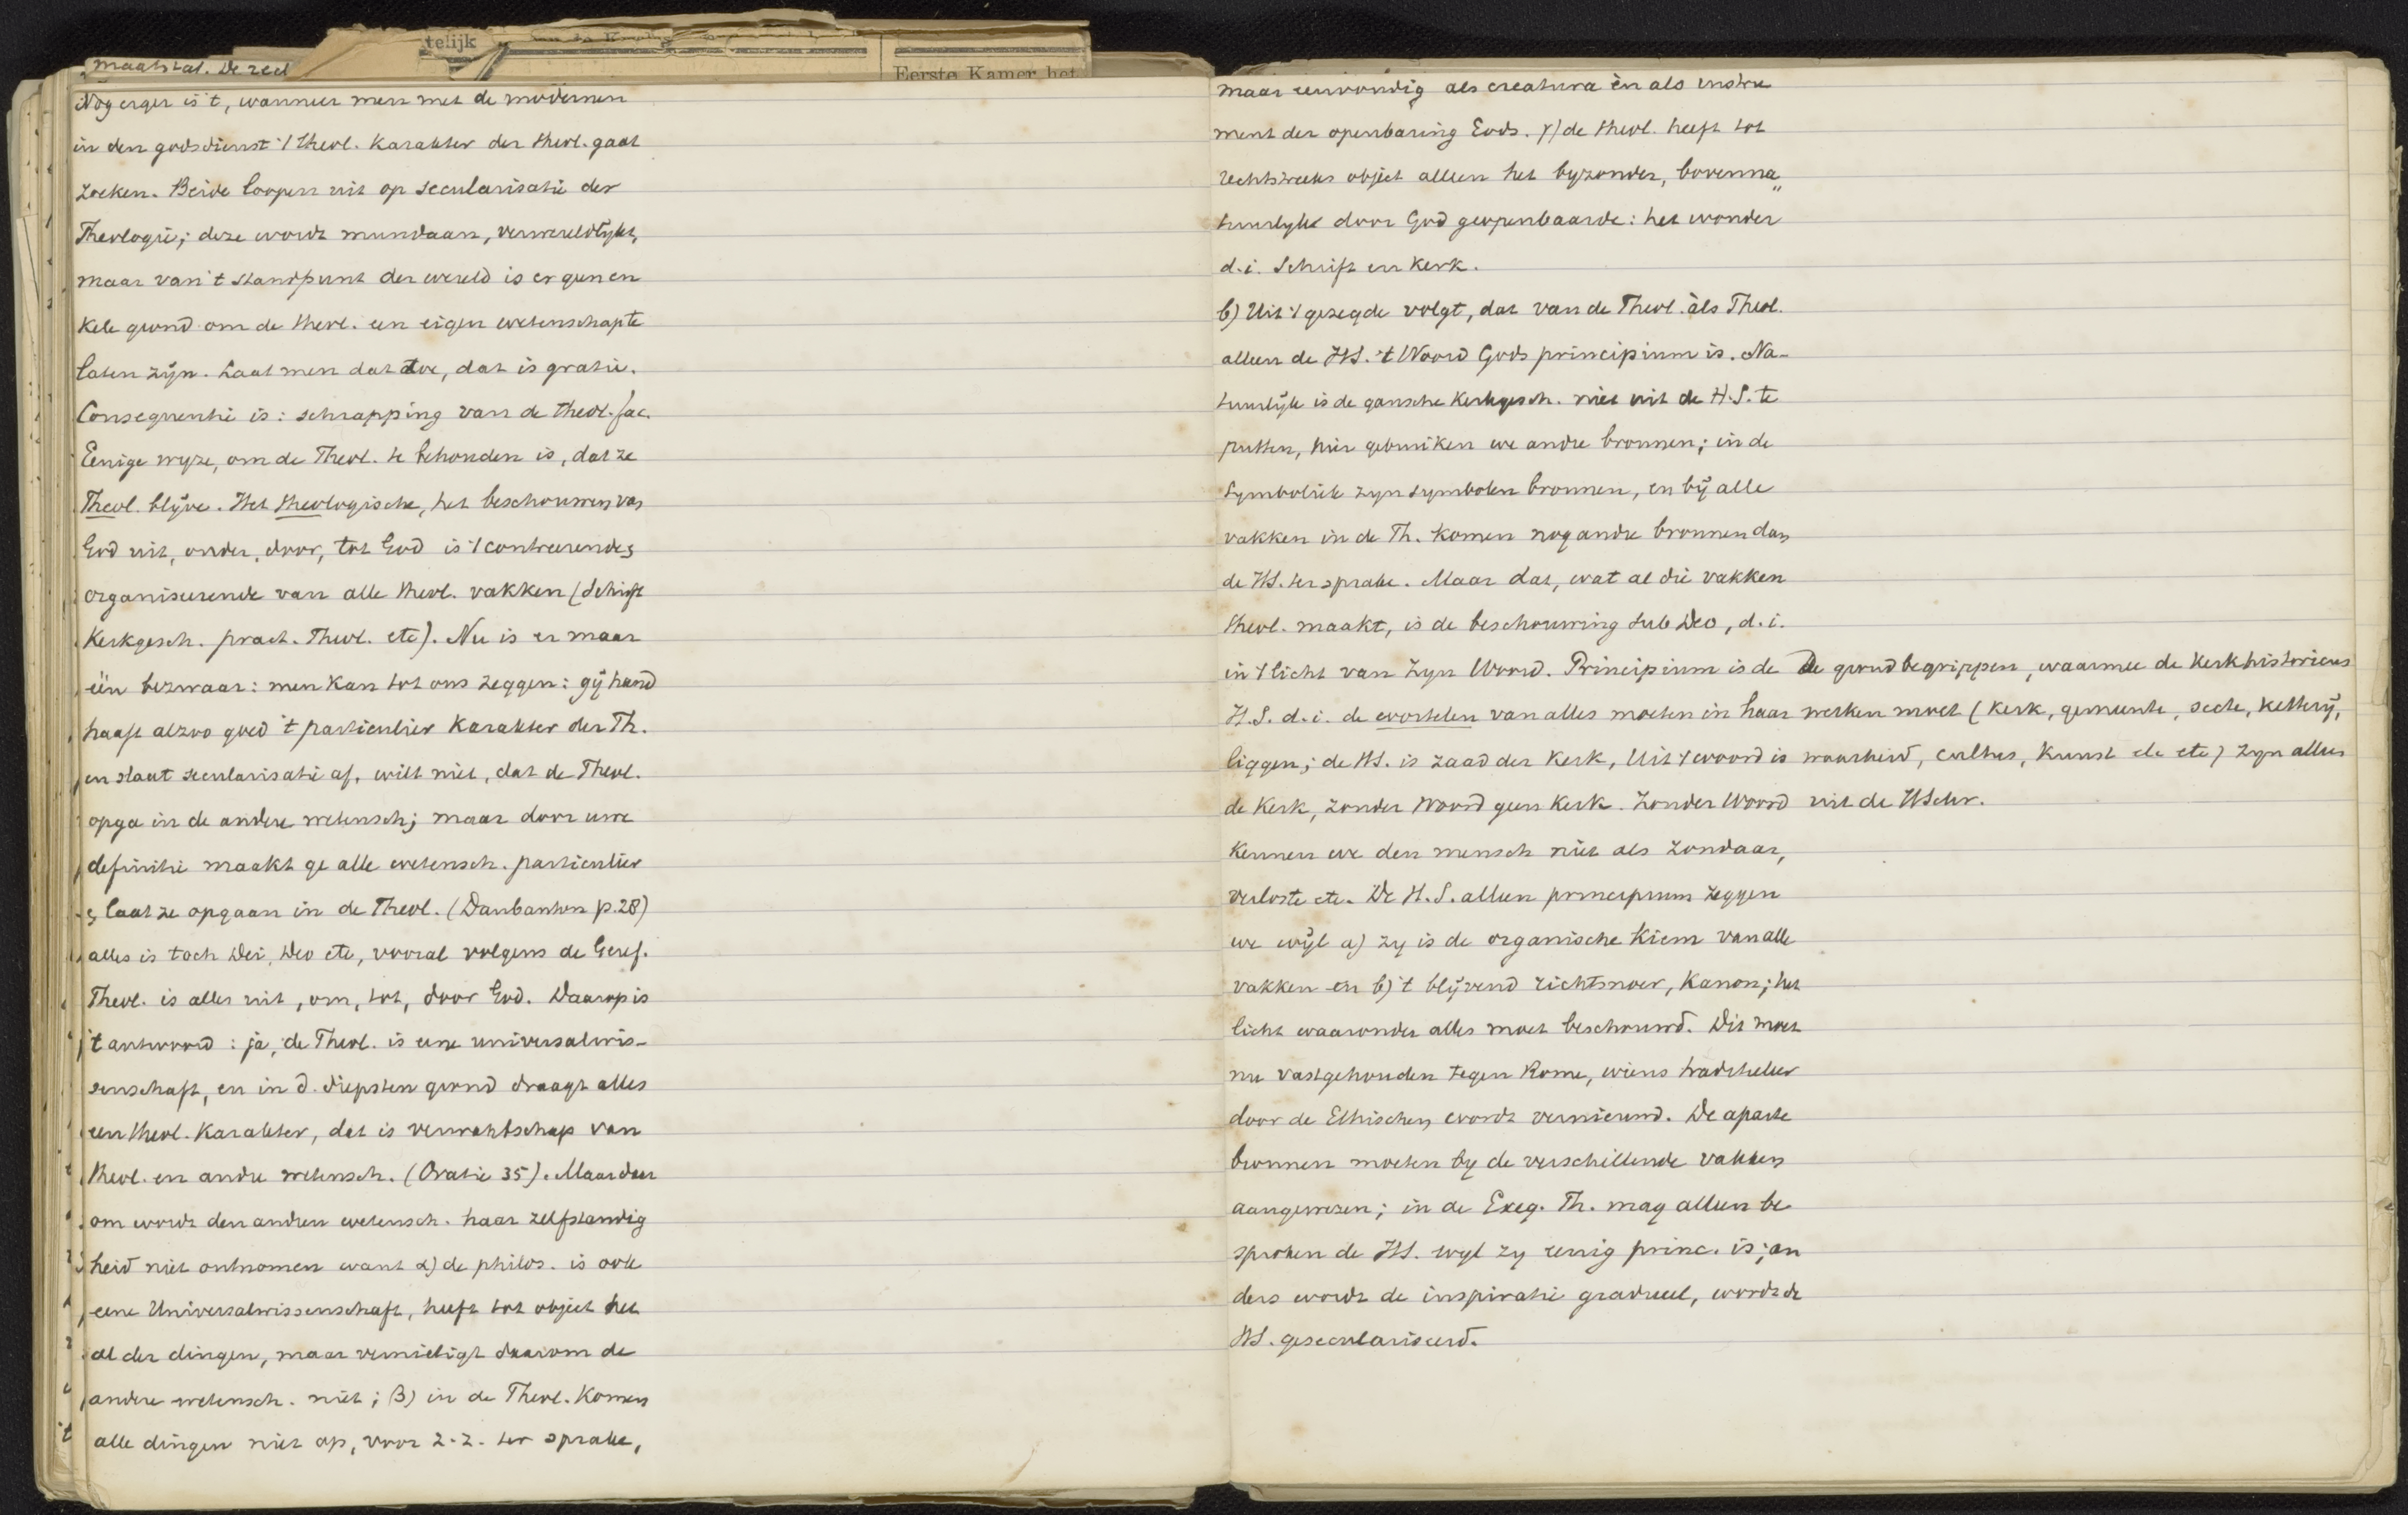 telijk
Eerste Kamer het
maatstaf. De reed
Nog erger is 't, wanneer men met de modernen
in den godsdienst 't theol. karakter der theol. gaat
zoeken. Beide loopen uit op secularisatie der
Theologie; deze wordt mundaan, verwereldlijkt,
maar van 't standpunt der wereld is er geen en
kele grond om de theol. een eigen wetenschap te
laten zijn. Laat men dat toe, dat is gratie.
Consequentie is: schrapping van de theol. fac.
Eenige wyze, om de Theol. te behouden is, dat ze
Theol. blijve. Het theologische, het beschouwen van
God uit, onder, door, tot God is 't centreerende &
organiseerende van alle theol. vakken (Schrift
Kerkgesch. pract. Theol. etc). Nu is er maar
één bezwaar: men kan tot ons zeggen: gij hand
haaft alzoo goed 't particulier karakter der Th.
en slaat secularisatie af, wilt niet, dat de Theol.
opga in de andere wetensch; maar door uwe
definitie maakt ge alle wetensch. particulier
& laat ze opgaan in de Theol. (Daubanton p. 28)
alles is toch Dei, Deo etc, vooral volgens de Geref.
Theol. is alles uit, om, tot, door God. Daarop is
't antwoord: ja, de Theol. is eene universalwis-
senschaft, en in d. diepsten grond draagt alles
een theol. karakter, dat is verwantschap van
theol. en andre wetensch. (Oratie 35). Maar daar
om wordt den andren wetensch. haar zelfstandig
heid niet ontnomen want α) de philos. is ook
eene Universalwissenschaft, heeft tot object het
al der dingen, maar vernietigt daarom de
andere wetensch. niet; β) in de Theol. komen
alle dingen niet op, voor z. z. ter sprake,
maar eenvoudig als creatura èn als instru
ment der openbaring Gods. γ) de theol. heeft tot
rechtstreeks object alleen het byzonder, bovenna„
tuurlyk door God geopenbaarde: het wonder
d.i. Schrift en Kerk.
b) Uit 't gezegde volgt, dat van de Theol. àls Theol.
alleen de HS. 't Woord Gods principium is. Na-
tuurlijk is de gansche Kerkgesch. niet uit de H.S. te
putten, hier gebruiken we andre bronnen; in de
Symboliek zyn symbolen bronnen, en bij alle
vakken in de Th. komen nog andre bronnen dan
de HS. ter sprake. Maar dat, wat al die vakken
theol. maakt, is de beschouwing sub Deo, d.i.
in 't licht van Zyn Woord. Principium is de
H.S. d.i. de wortelen van alles moeten in haar
liggen; de HS. is zaad der Kerk, Uit 't woord is
de Kerk, zonder Woord geen Kerk. Zonder Woord
kennen we den mensch niet als zondaar,
verloste etc. De H.S. alleen principium zeggen
we wijl a) zy is de organische kiem van alle
vakken èn b) 't blijvend richtsnoer, Kanon; het
licht waaronder alles moet beschouwd. Dit moet
nu vastgehouden tegen Rome, wiens tradit.leer
door de Ethischen wordt vernieuwd. De aparte
bronnen moeten by de verschillende vakken
aangewezen; in de Exeg. Th. mag alleen be
sproken de HS. wyl zy eenig princ. is; an
ders wordt de inspiratie gradueel, wordt de
HS. geseculariseerd.
De grondbegrippen, waarmee de Kerkhistoricus
werken moet (Kerk, gemeente, secte, ketterij,
waarheid, cultus, kunst etc etc) zyn alles
uit de HSchr.